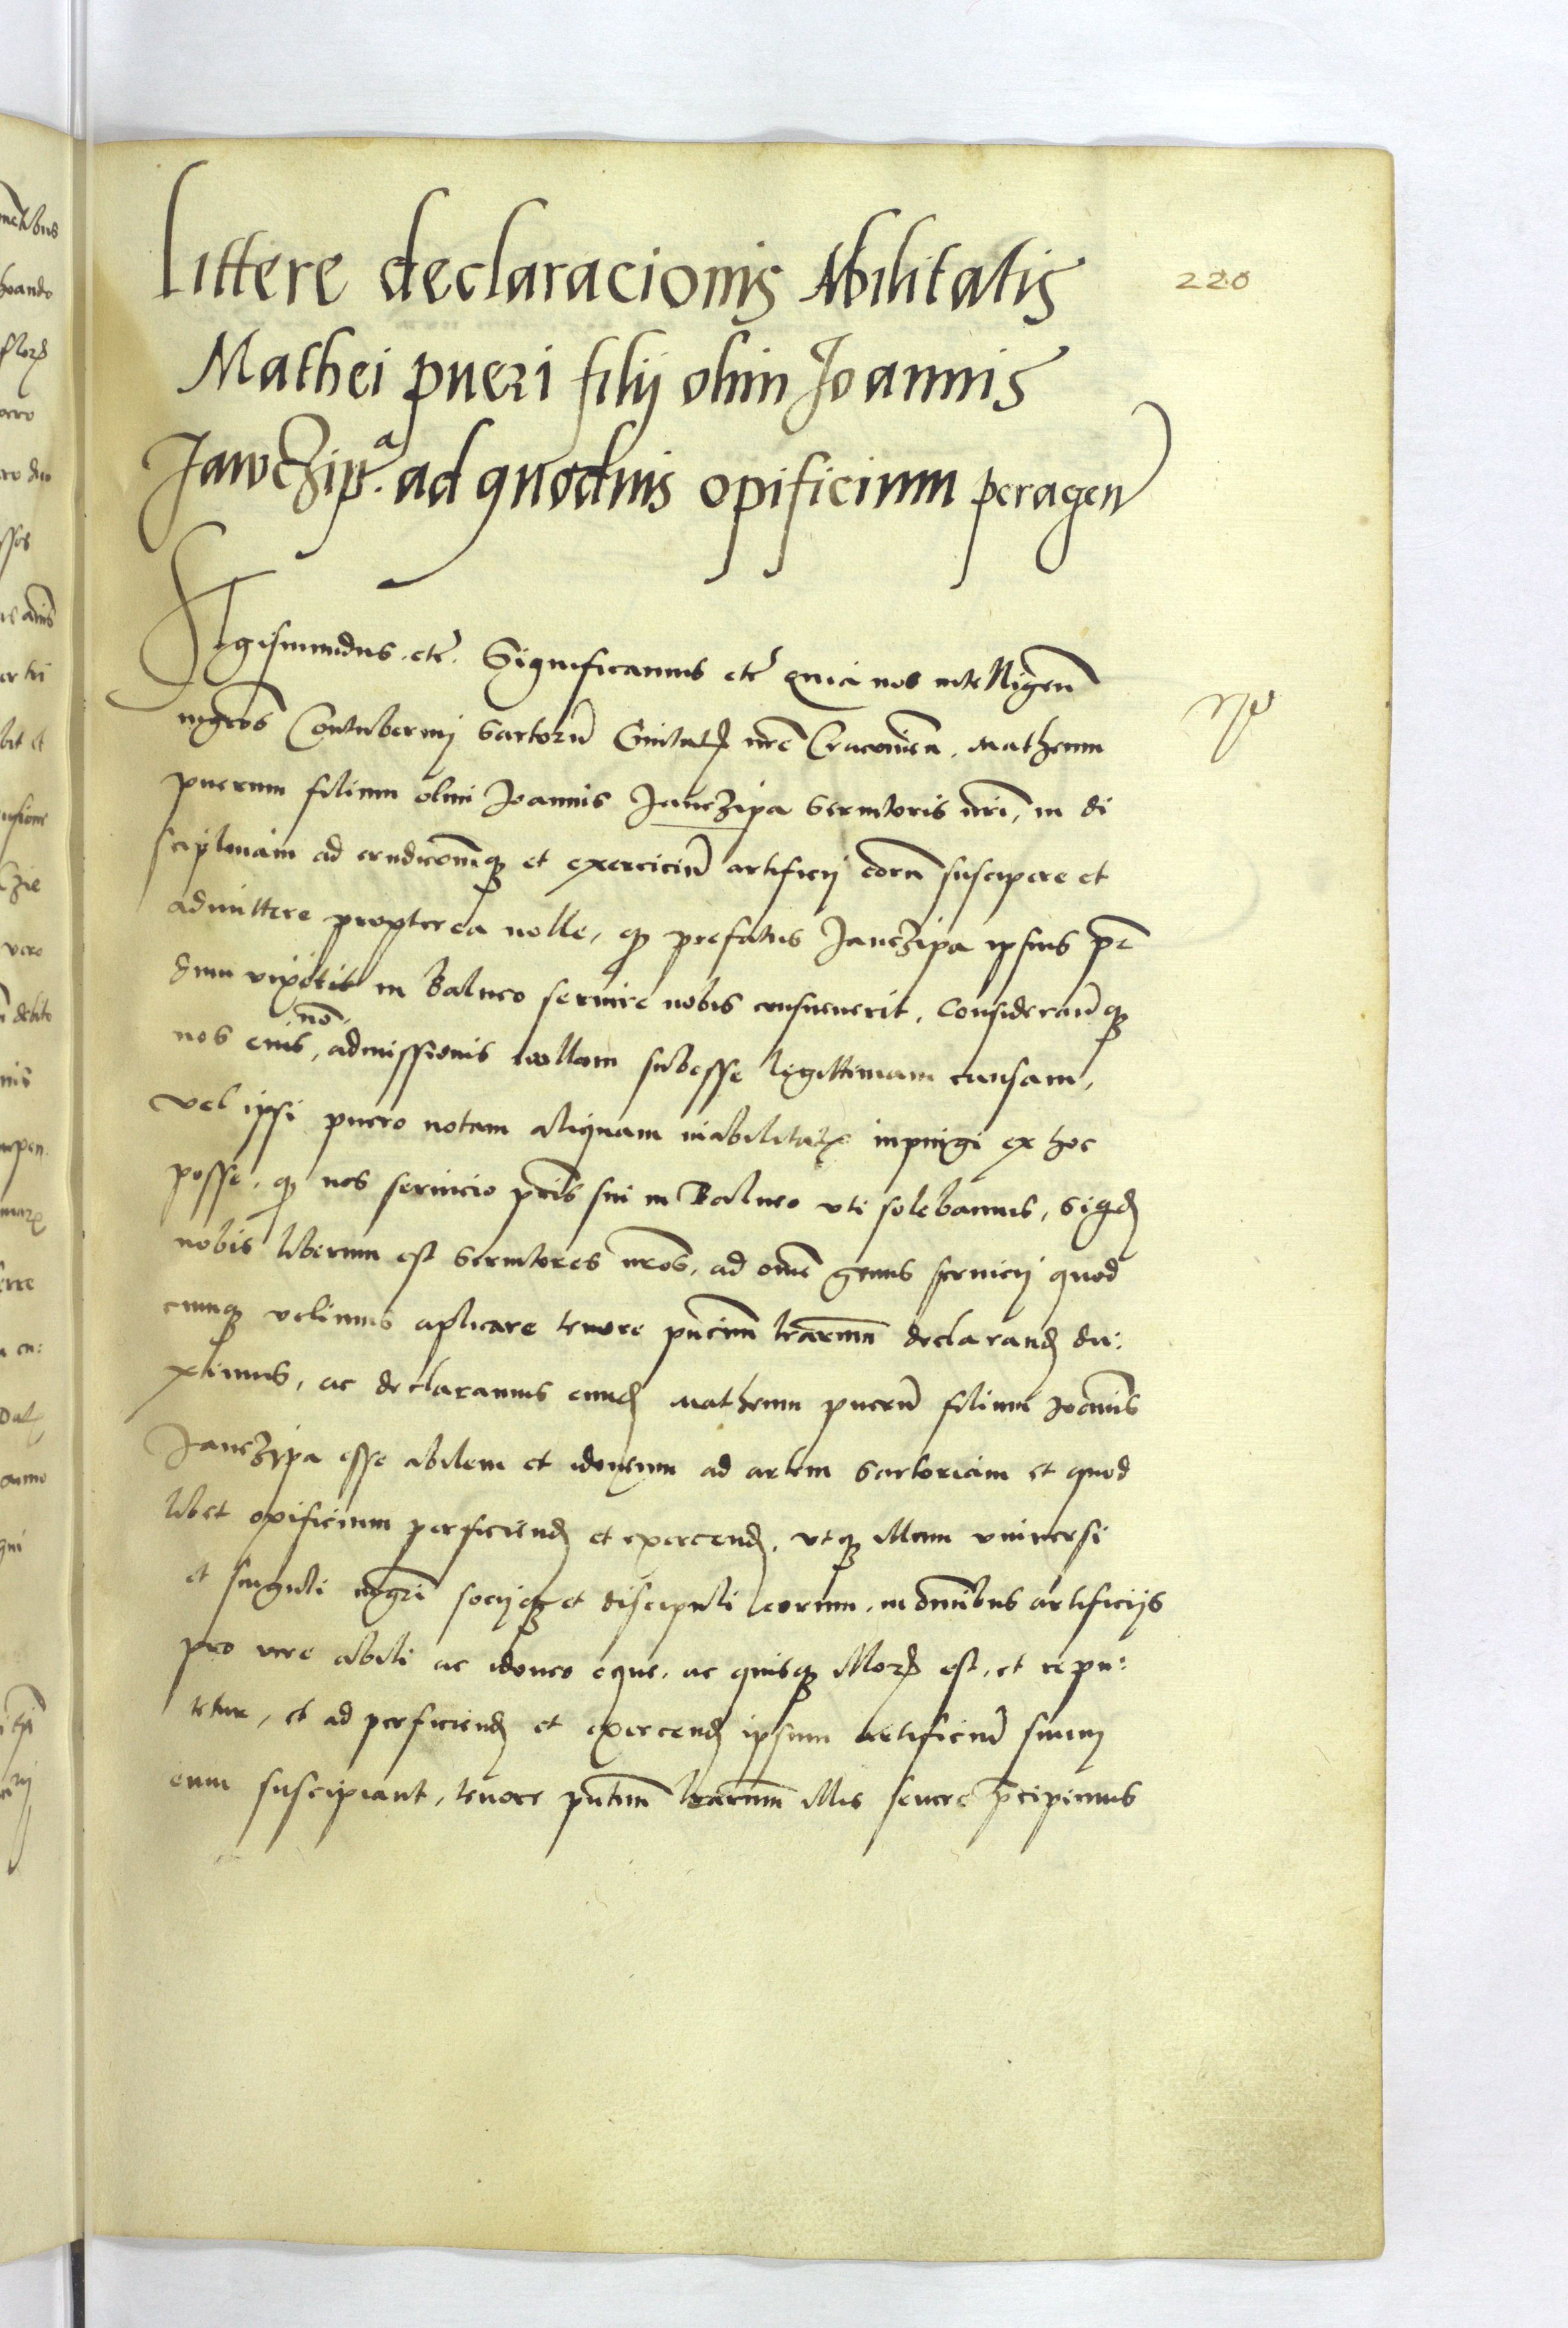 Littere declaracionis Abilitatis
220
Mathei pueri filij olim Joannis
Jawczipa. ad quoduis opificium peragen
Sigismundus. etc. Significamus etc quia nos intelligen
mgros Contubernij Sartorū Ciuitatis nre Cracouien. Matheum
puerum filium olim Joannis Janczipa Seruitoris nri, in di
sciplinam ad erudicōnemq et exerciciū artificij eorū suscipere et
admittere propterea nolle, q prefatus Janczipa ipsius pr
dum vixerit in Balneo seruire nobis consueuerit. Considerantesq
nō
nos eius, admissionis nullam subesse legittimam causam,
vel ipsi puero notam aliquam inabilitatis inpingi ex hoc
posse, q nos seruicio pris sui in Balneo vti solebamus, Siqd
nobis liberum est Seruitores nros, ad ome genus seruicij quod
cumq velimus aplicare tenore pncium lrarum declarand du:
ximus, ac declaramus eund Matheum puerū filium Joānis
Janczypa esse abilem et idoneum ad artem Sartoriam et quod
libet opificium perficiend et exercend, vtq illum vniuersi
et singuli mgri socijq et discipuli eorum, in omibus artificijs
pro vere abili ac idoneo eque, ac quisq illorū est, et repu:
tetur, et ad perficiend et exercend ipsum artificiū suum
eum suscipiant, tenore pntium lrarum illis seuere pcipimus